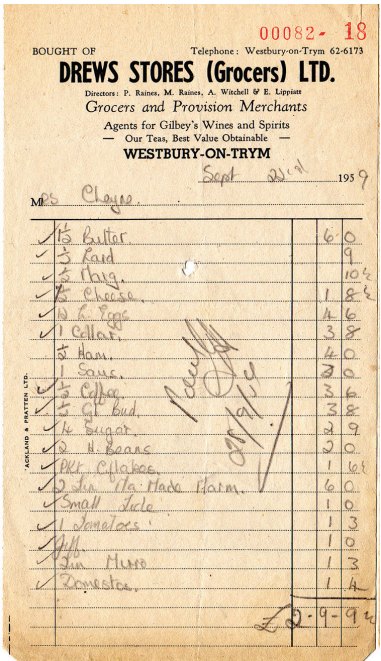 00082- 18
BOUGHT OF Telephone: Westbury-on-Trym 62-6173
DREWS STORES (Grocers) LTD.
Directors: P. Raines, M. Raines, A. Witchell & E. Lippiatt
Grocers and Provision Merchants
Agents for Gilbey's Wines and Spirits
— Our Teas, Best Value Obtainable —
WESTBURY-ON-TRYM
Sept 1959
Mrs Cheyne.
1½ Butter. 6 0
½ Lard 9
½ Marg. 10½
½ Cheese. 1 8½
12 L. Eggs 4 6
1 Collar. 3 8
½ Ham. 4 0
1 Saus. 3 0
½ Coffee. 3 6
½ Bud. 3 8
4 Sugar. 2 9
2 H. Beans 2 0
Pkt C/flakes. 1 6½
2 Tin Ma Made Marm. 6 0
Small Tide 1 0
1 Tomatoes 1 3
Jiff. 1 0
Tin Murro 1 3
Domestos. 1 4
£2-9-9½
ACKLAND & PRATTEN LTD.